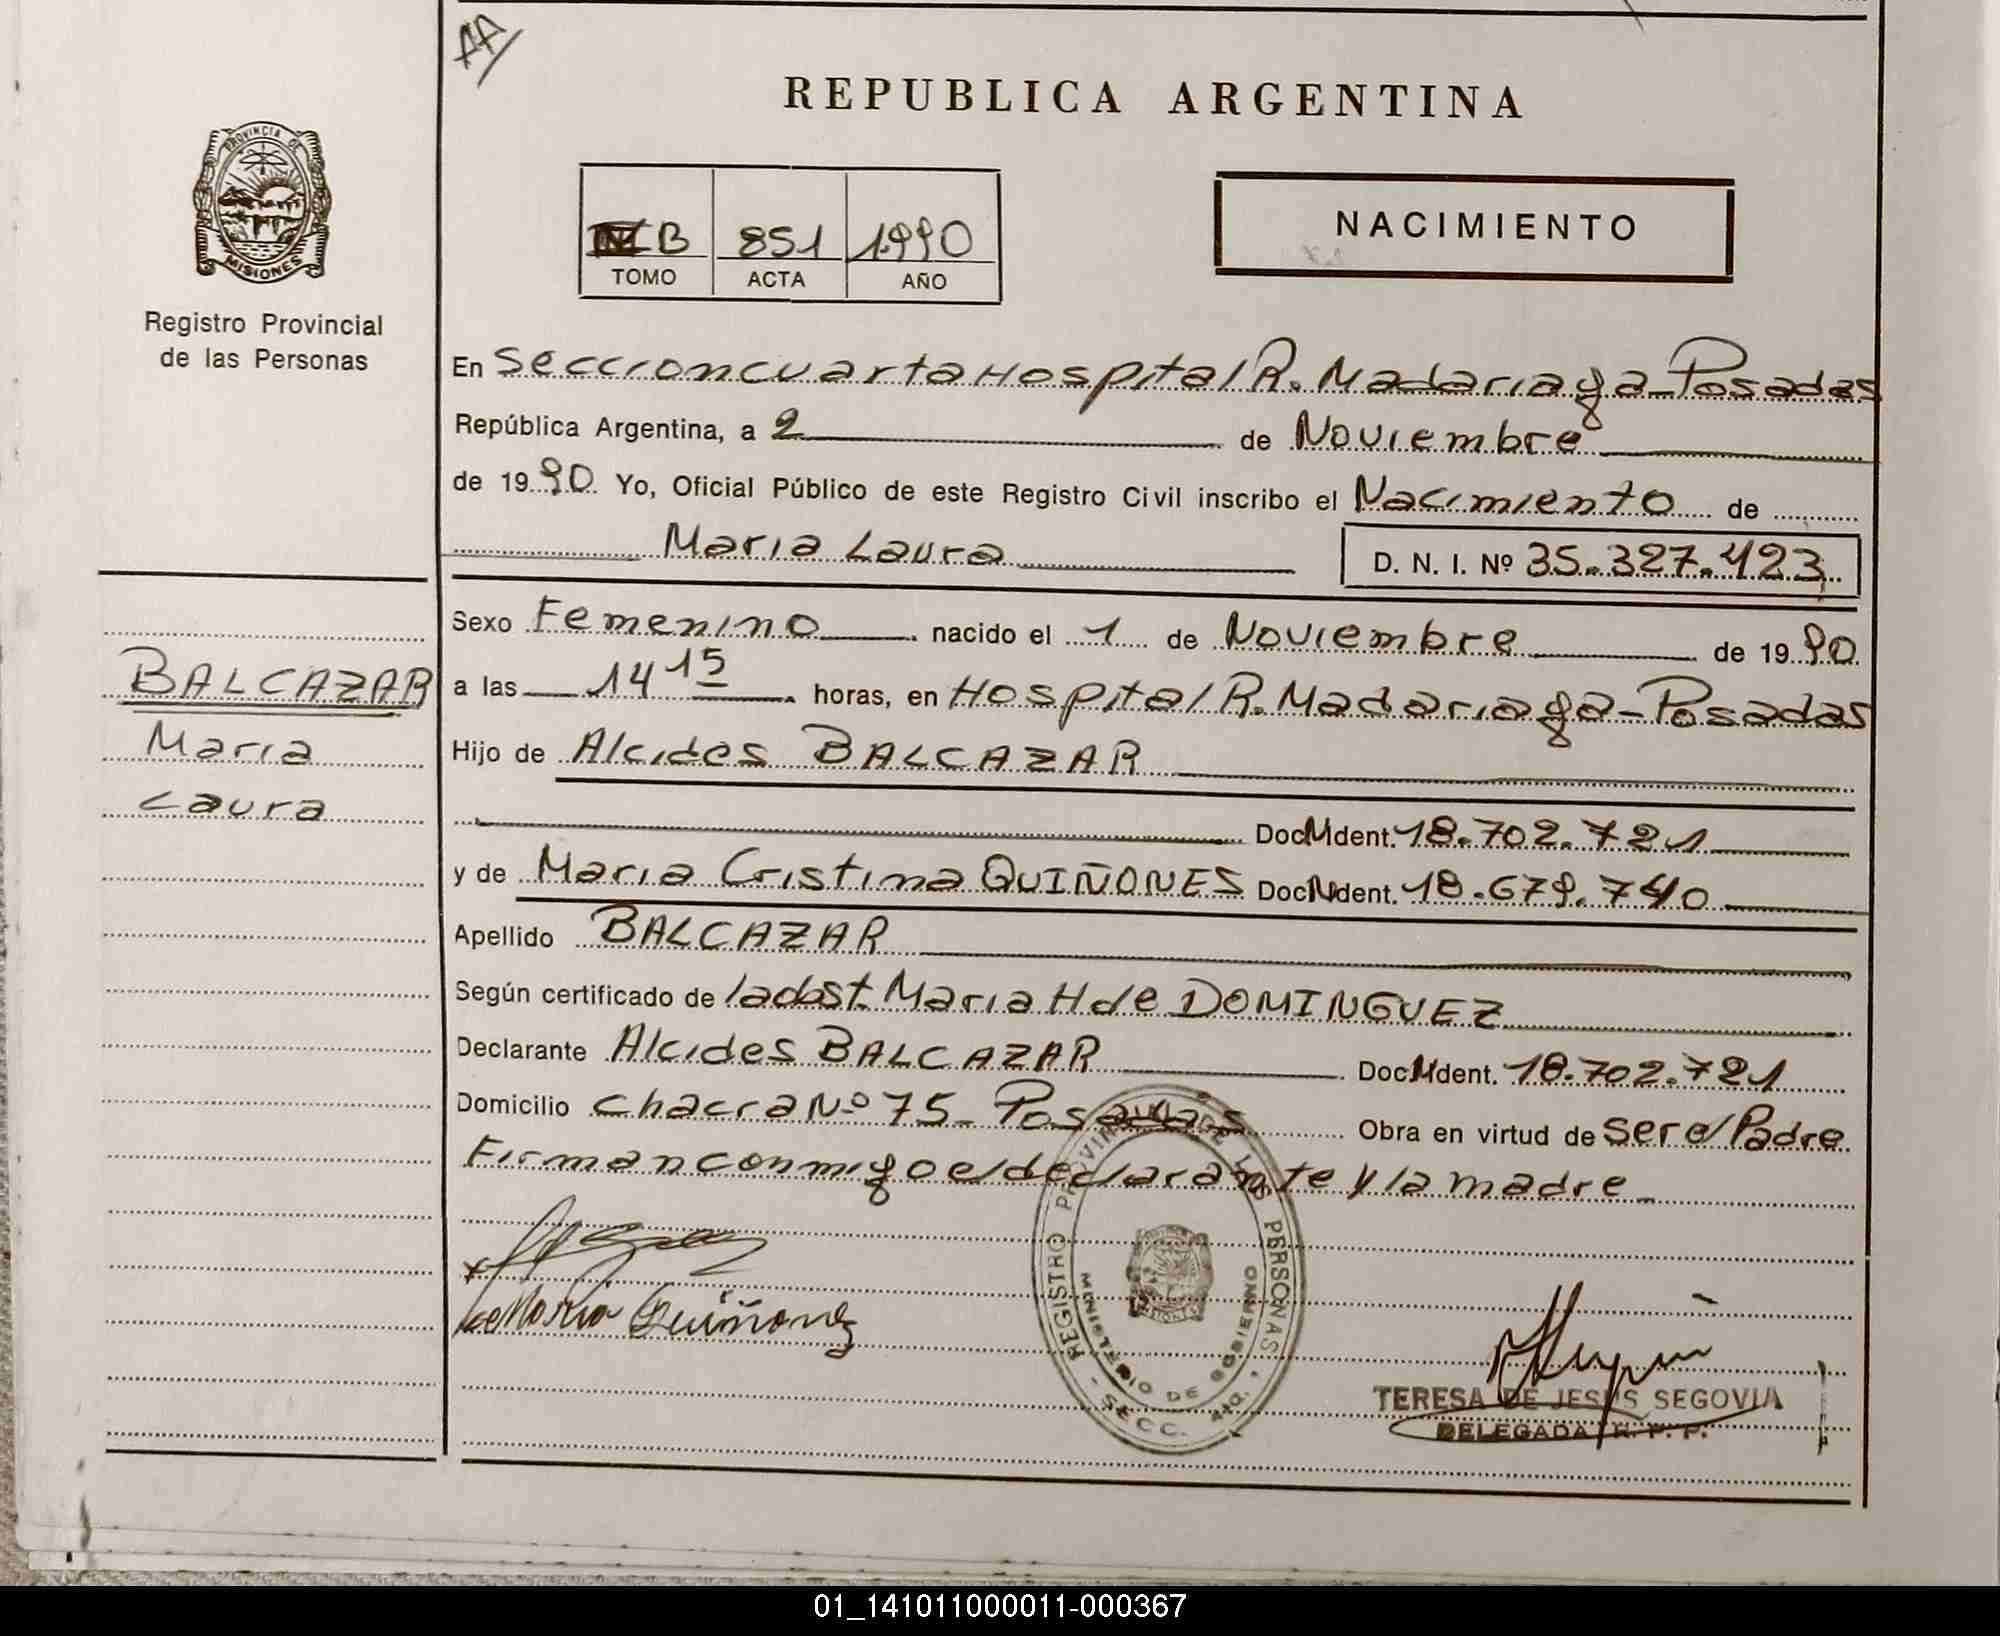 AA
REPUBLICA ARGENTINA
PROVINCIA DE
MISIONES
Registro Provincial
de las Personas
B 851 1990
TOMO ACTA AÑO
NACIMIENTO
En Seccion cuarta Hospital R. Madariaga-Posadas
República Argentina, a 2 de Noviembre
de 1990 Yo, Oficial Público de este Registro Civil inscribo el Nacimiento de
Maria Laura D. N. I. Nº 35.327.423
Sexo Femenino nacido el 1 de Noviembre de 1990
BALCAZAR
Maria
Laura
a las 14 15 horas, en Hospital R. Madariaga-Posadas
Hijo de Alcides BALCAZAR
Doc. Ident. 18.702.721
y de Maria Cristina QUIÑONES Doc. Ident. 18.679.740
Apellido BALCAZAR
Según certificado de la obst. Maria H de DOMINGUEZ
Declarante Alcides BALCAZAR Doc. Ident. 18.702.721
Domicilio chacra Nº 75- Posadas Obra en virtud de ser el Padre
Firman conmigo el declarante y la madre-
REGISTRO PROVINCIAL DE LAS PERSONAS
MINISTERIO DE GOBIERNO
- SECC. 4ta. -
Maria Quiñonez
TERESA DE JESUS SEGOVIA
DELEGADA R. P. P.
01_141011000011-000367